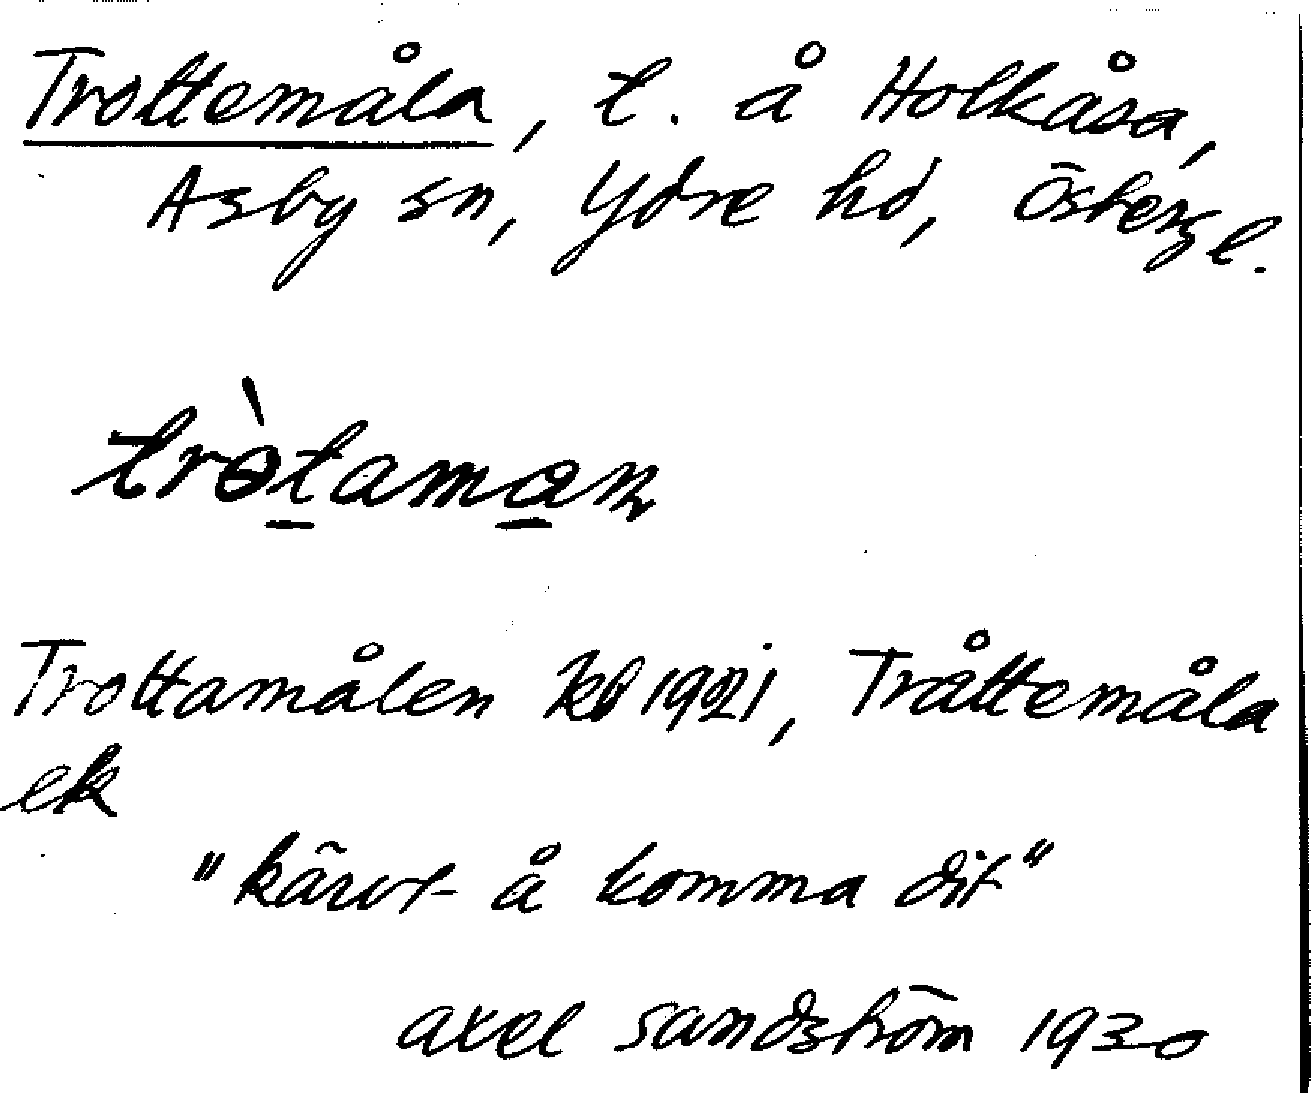 Trottemåla, t. å Holkåsa,
Asby sn, Ydre hd, Östergl.
tròtaman
Trottamålen kb 1921, Tråttemåla
ek
"kärvt å komma dit"
axel sandström 1930